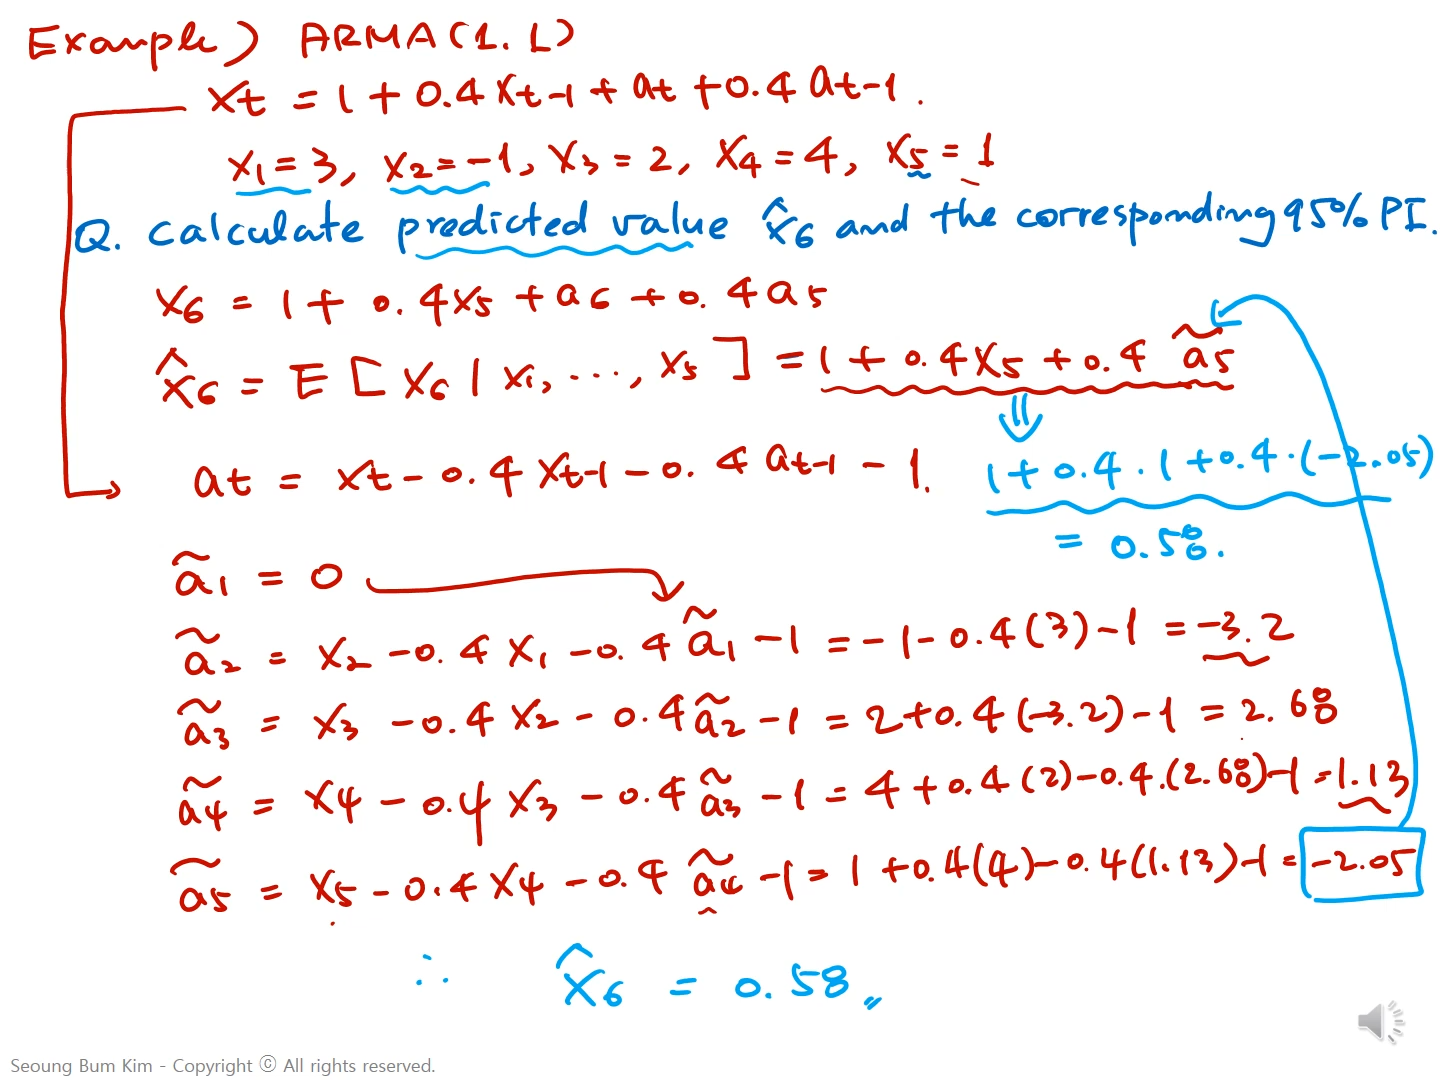 Example) ARMA(1.1)
Xt = 1 + 0.4 Xt-1 + at + 0.4 at-1.
X1 = 3, X2 = -1, X3 = 2, X4 = 4, X5 = 1
Q. calculate predicted value X̂6 and the corresponding 95% PI.
X6 = 1 + 0.4X5 + a6 + 0.4 a5
X̂6 = E [ X6 | X1, ..., X5 ] = 1 + 0.4X5 + 0.4 ã5
⇓
at = Xt - 0.4 Xt-1 - 0.4 at-1 - 1.
1 + 0.4 · 1 + 0.4 · (-2.05)
= 0.58.
ã1 = 0
ã2 = X2 - 0.4 X1 - 0.4 ã1 - 1 = -1 - 0.4(3) - 1 = -3.2
ã3 = X3 - 0.4 X2 - 0.4 ã2 - 1 = 2 + 0.4(-3.2) - 1 = 2.68
ã4 = X4 - 0.4 X3 - 0.4 ã3 - 1 = 4 + 0.4(2) - 0.4.(2.68) - 1 = 1.13
ã5 = X5 - 0.4 X4 - 0.4 ã4 - 1 = 1 + 0.4(4) - 0.4(1.13) - 1 = -2.05
∴ X̂6 = 0.58
Seoung Bum Kim - Copyright ⓒ All rights reserved.